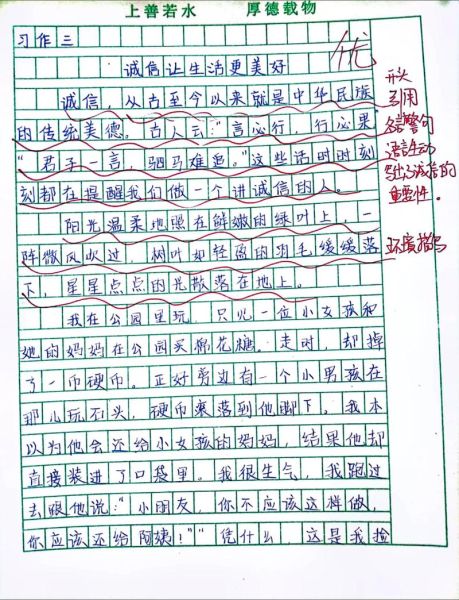 上善若水 厚德载物
习作三
优
诚信让生活更美好
诚信，从古至今以来就是中华民族
的传统美德。古人云：“言必行，行必果”
“君子一言，驷马难追。”这些话时时刻
刻都在提醒我们做一个讲诚信的人。
阳光温柔地照在鲜嫩的绿叶上，一
阵微风吹过，树叶如轻盈的羽毛缓缓落
下，星星点点的光散落在地上。
我在公园里玩 只见一位小女孩和
她的妈妈在公园买棉花糖。走时，却掉
了一币硬币。正好旁边有一个小男孩在
那儿玩石头，硬币落到他脚下。我本
以为他会还给小女孩的妈妈，结果他却
直接装进了口袋里。我很生气，我跑过
去跟他说：“小朋友，你不应该这样做，
你应该还给阿姨！”“凭什么 这是我捡
开头
引用
名言警句
语言生动
写出了诚信的
重要性。
环境描写